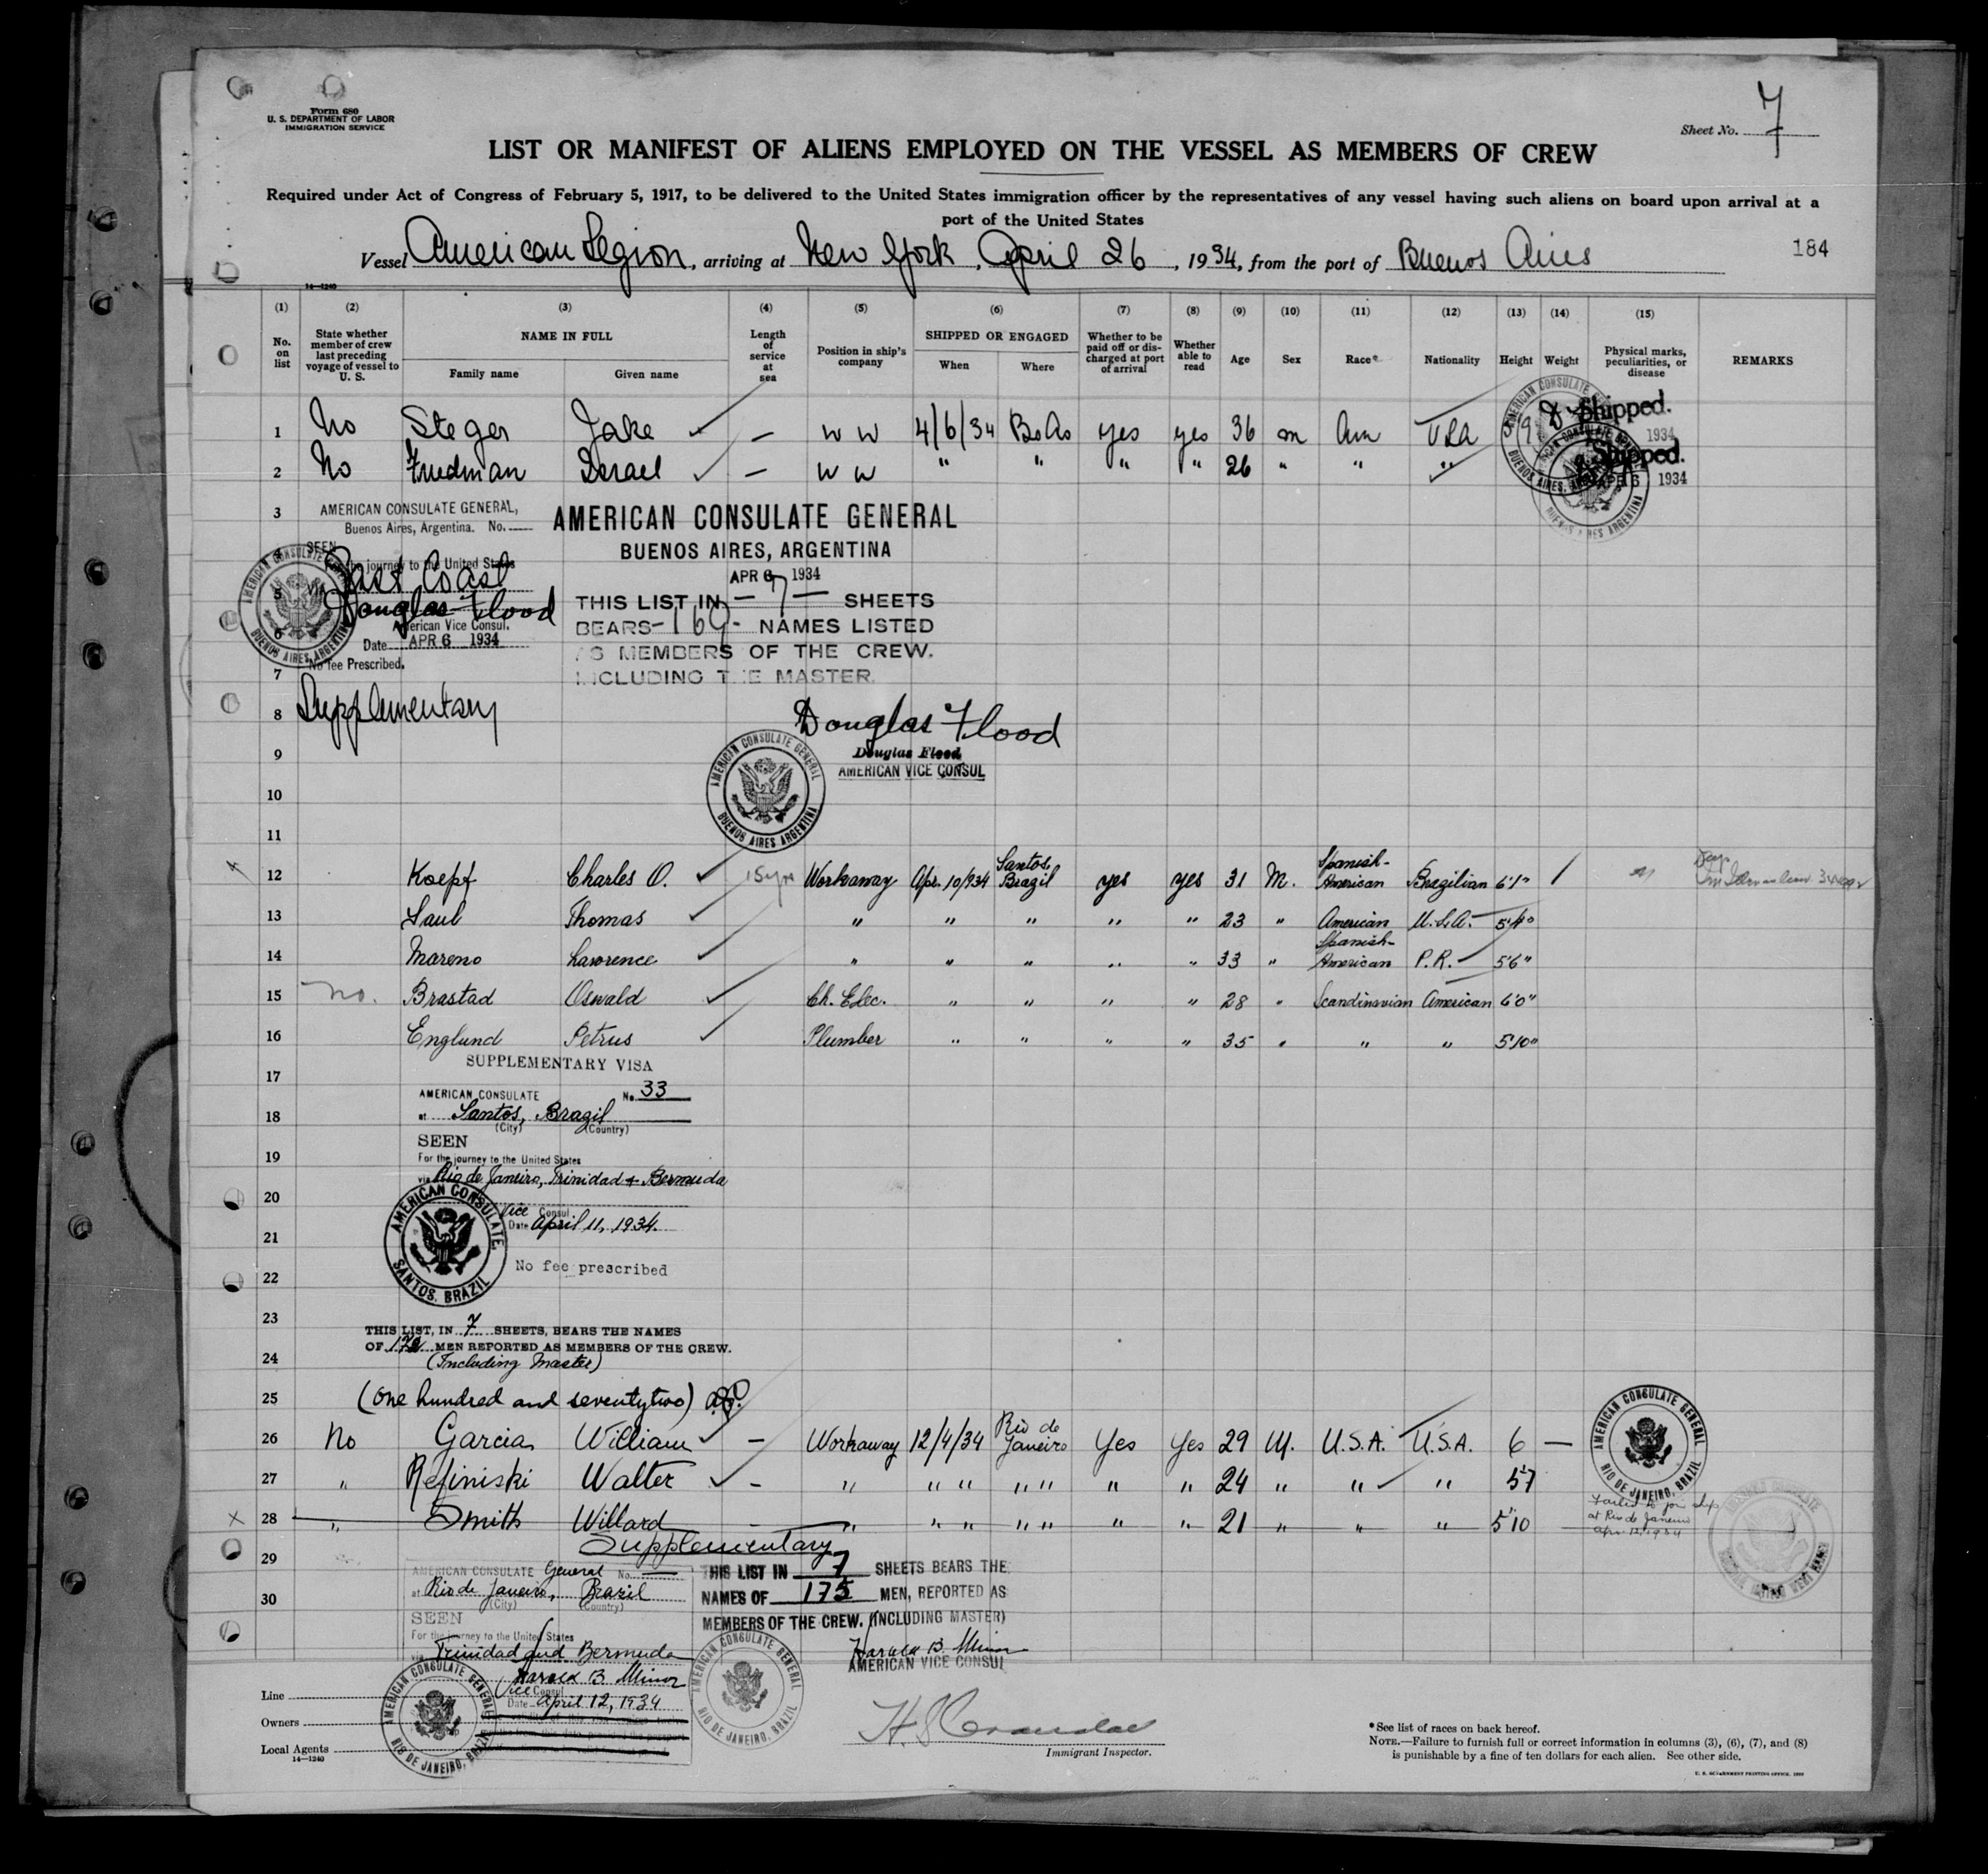 Form 680
U. S. DEPARTMENT OF LABOR
IMMIGRATION SERVICE
Sheet No. 7
LIST OR MANIFEST OF ALIENS EMPLOYED ON THE VESSEL AS MEMBERS OF CREW
Required under Act of Congress of February 5, 1917, to be delivered to the United States immigration officer by the representatives of any vessel having such aliens on board upon arrival at a
port of the United States
Vessel American Legion, arriving at New York, April 26, 1934, from the port of Buenos Aires
184
14—1240
(1) (2) (3) (4) (5) (6) (7) (8) (9) (10) (11) (12) (13) (14) (15)
No. on list
State whether member of crew last preceding voyage of vessel to U. S.
NAME IN FULL
Family name
Given name
Length of service at sea
Position in ship's company
SHIPPED OR ENGAGED
When
Where
Whether to be paid off or discharged at port of arrival
Whether able to read
Age
Sex
Race*
Nationality
Height
Weight
Physical marks, peculiarities, or disease
REMARKS
1 No Steger Jake — W W 4/6/34 Bs As yes yes 36 m Am USA Shipped. 1934
2 No Friedman Israel — W W " " " " 26 " " " Shipped. APR 6 1934
3
AMERICAN CONSULATE GENERAL,
Buenos Aires, Argentina. No.
SEEN
the journey to the United States
via East Coast
Douglas Flood
American Vice Consul.
Date APR 6 1934
No fee Prescribed.
AMERICAN CONSULATE GENERAL
BUENOS AIRES, ARGENTINA
APR 6 1934
THIS LIST IN — 7 — SHEETS
BEARS - 167 - NAMES LISTED
AS MEMBERS OF THE CREW.
INCLUDING THE MASTER.
7
8 Supplementary
Douglas Flood
Douglas Flood
AMERICAN VICE CONSUL
AMERICAN CONSULATE GENERAL
BUENOS AIRES ARGENTINA
9
10
11
12 Koepf Charles O. 15 yrs Workaway Apr. 10/934 Santos, Brazil yes yes 31 M. Spanish-American Brazilian 6'1"
13 Saul Thomas " " " " " 23 " American U.S.A. 5'4"
14 Moreno Lawrence " " " " " 33 " Spanish-American P.R. 5'6"
15 no. Brastad Oswald Ch. Elec. " " " " 28 " Scandinavian American 6'0"
16 Englund Petrus Plumber " " " " 35 " " " 5'10"
SUPPLEMENTARY VISA
17
AMERICAN CONSULATE No. 33
18 at Santos, Brazil
(City) (Country)
SEEN
19 For the journey to the United States
via Rio de Janeiro, Trinidad & Bermuda
20
Vice Consul
Date April 11, 1934.
21
No fee prescribed
22
AMERICAN CONSULATE
SANTOS, BRAZIL
23
THIS LIST, IN 7 SHEETS, BEARS THE NAMES
OF 172 MEN REPORTED AS MEMBERS OF THE CREW.
24 (Including Master)
25 (One hundred and seventytwo)
26 No Garcia William — Workaway 12/4/34 Rio de Janeiro Yes Yes 29 M. U.S.A. U.S.A. 6 —
27 " Refiniski Walter — " " " " " " " 24 " " " 5'7
28 " Smith Willard — " " " " " " " 21 " " " 5'10
Failed to join ship
at Rio de Janeiro
Apr. 12, 1934
AMERICAN CONSULATE GENERAL
RIO DE JANEIRO, BRAZIL
Supplementary
29
AMERICAN CONSULATE General No. —
at Rio de Janeiro, Brazil
(City) (Country)
30
SEEN
For the journey to the United States
via Trinidad and Bermuda
Harold B. Minor
Vice Consul
Date April 12, 1934
THIS LIST IN 7 SHEETS BEARS THE
NAMES OF 175 MEN, REPORTED AS
MEMBERS OF THE CREW. (INCLUDING MASTER)
Harold B. Minor
AMERICAN VICE CONSUL
AMERICAN CONSULATE GENERAL
RIO DE JANEIRO, BRAZIL
AMERICAN CONSULATE GENERAL
RIO DE JANEIRO, BRAZIL
Line
Owners
Local Agents
14—1240
Immigrant Inspector.
* See list of races on back hereof.
NOTE.—Failure to furnish full or correct information in columns (3), (6), (7), and (8)
is punishable by a fine of ten dollars for each alien. See other side.